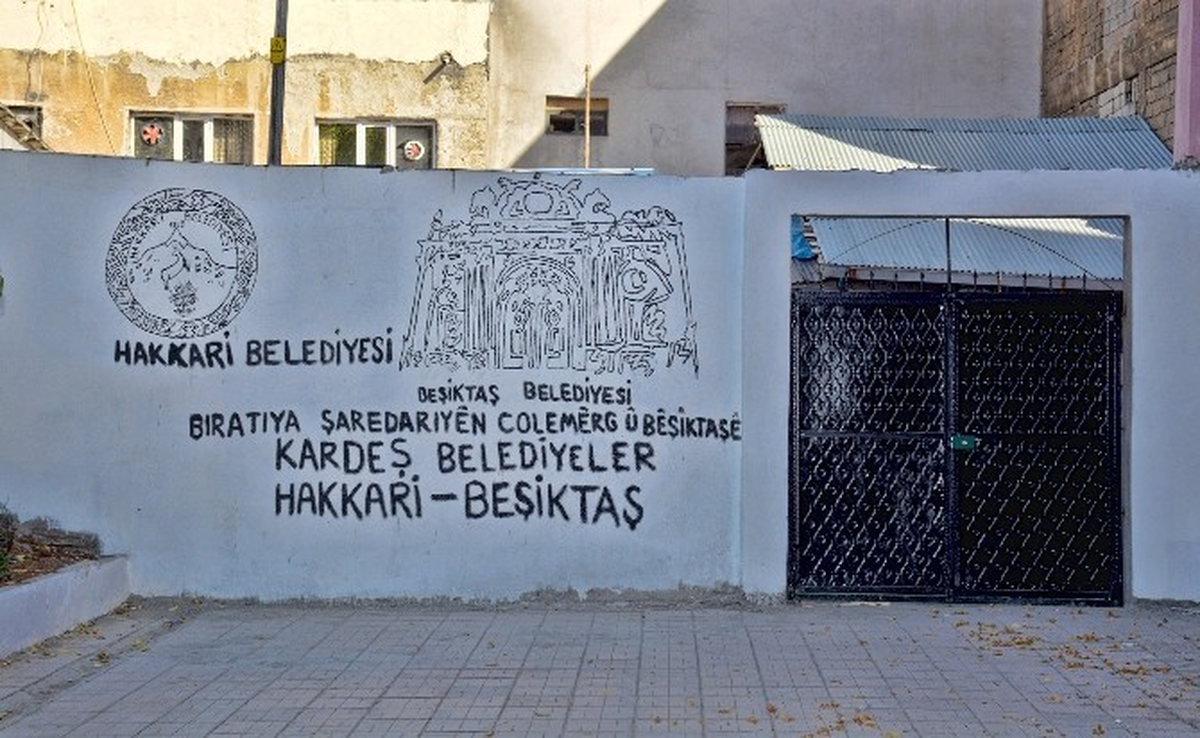 HAKKARİ BELEDİYESİ
BEŞİKTAŞ BELEDİYESİ
BIRATIYA ŞAREDARIYÊN COLEMÊRG Û BÊŞİKTAŞÊ
KARDEŞ BELEDİYELER
HAKKARİ - BEŞİKTAŞ